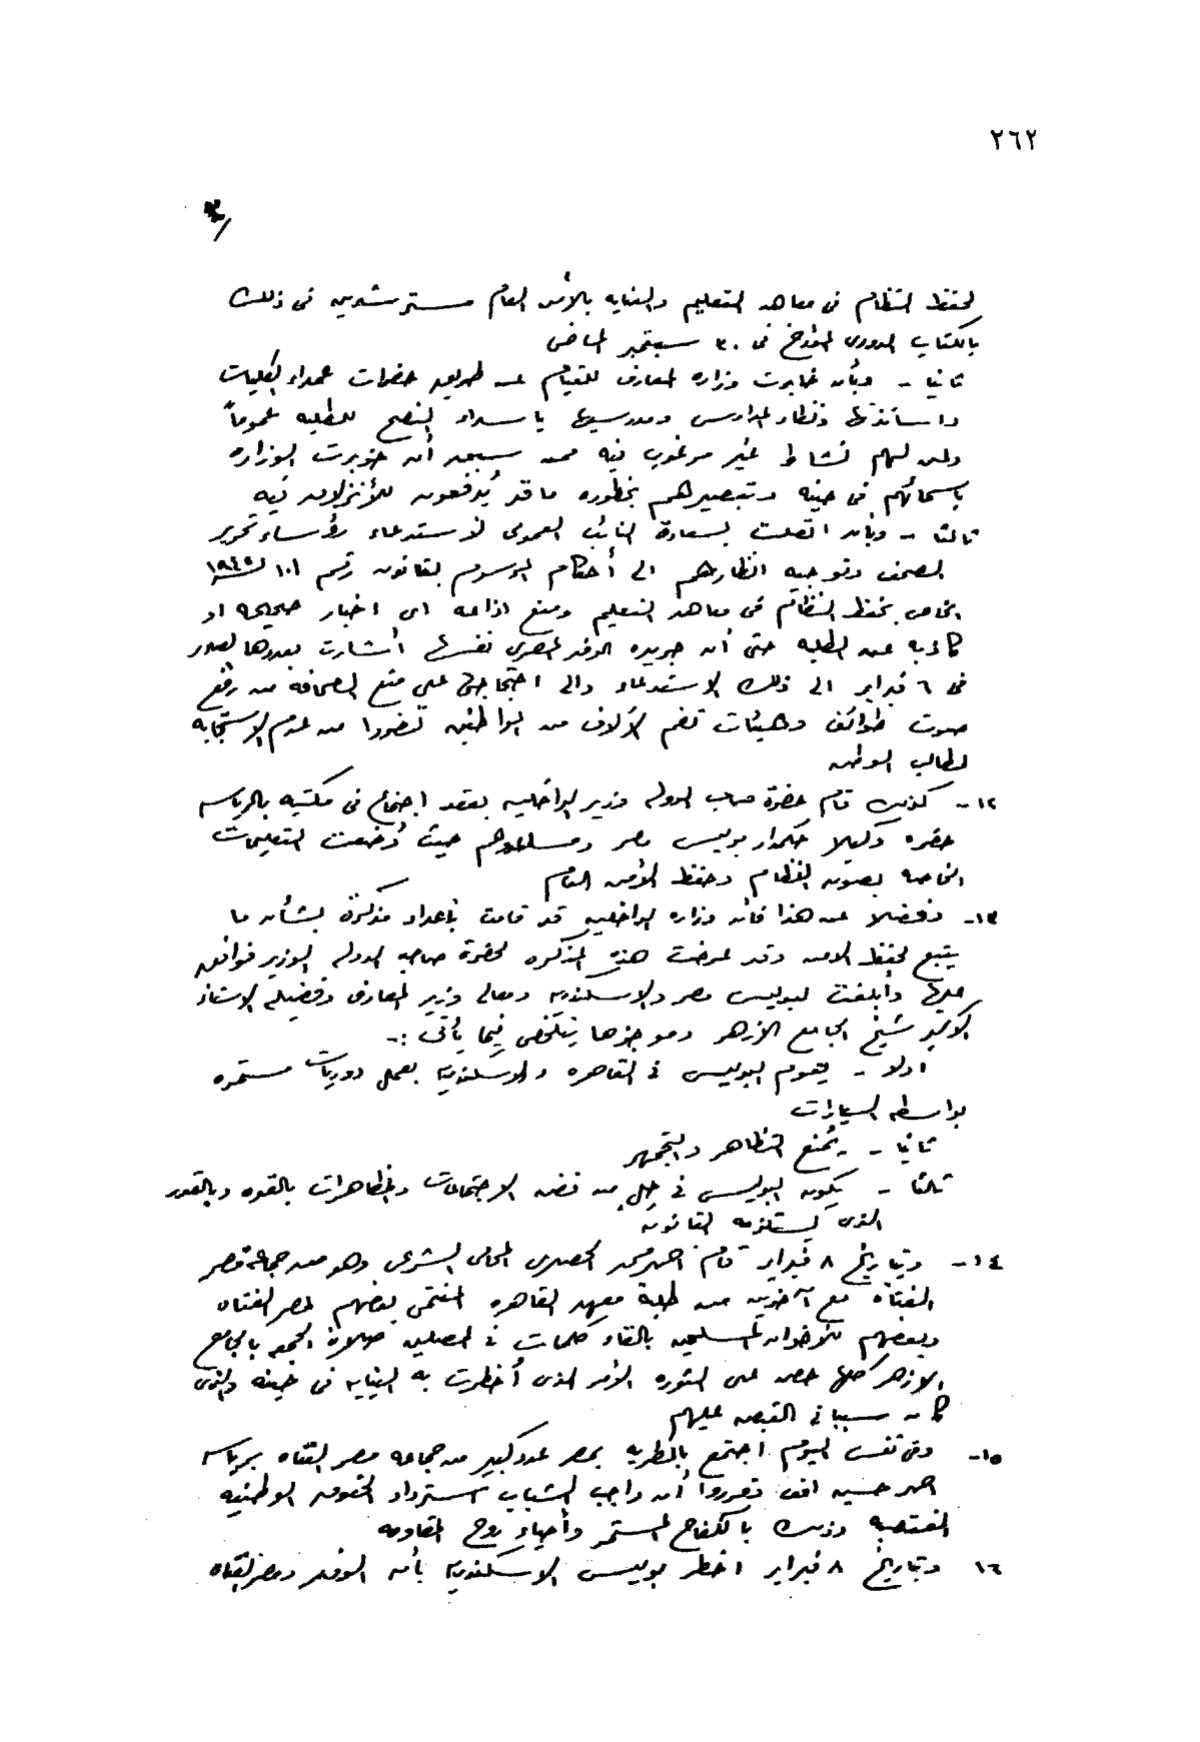 ٢٦٢
٣/
لحفظ النظام فى معاهد التعليم والعنايه بالأمن العام مسترشدين فى ذلك
بالكتاب الدورى المؤرخ فى ٣٠ سبتمبر الماضى
ثانيا - وبأن خابرت وزاره المعارف للقيام عن طريق حضرات عمداء الكليات
واساتذتها ونظار المدارس ومدرسيها باسداء النصح للطلبه عموماً
ولمن لهم نشاط غير مرغوب فيه ممن سبق أن خوبرت الوزاره
باسمائهم فى حينه وتبصيرهم بخطوره ما قد يُدفعون للأنزلاق فيه
ثالثا - وبأن اتصلت بسعادة النائب العمومى لاستدعاء رؤساء تحرير
الصحف وتوجيه انظارهم الى أحكام المرسوم بقانون رقم ١٠١ لسنة ١٩٤٥
الخاص بحفظ النظام فى معاهد التعليم ومنع اذاعه اى اخبار صحيحه او
كاذبه عن الطلبه حتى أن جريده الوفد المصرى نفسها أشارت بعددها الصادر
فى ٦ فبراير الى ذلك الاستدعاء والى احتجاجها على منع الصحافه من رفع
صوت طوائف وهيئات تضم الألاف من المواطنين تضوروا من عدم الاستجابه
لمطالب الوطن
١٢- كذلك قام حضرة صاحب الدوله وزير الداخليه بعقد اجتماع فى مكتبه بالرياسه
حضره وكيلا حكمدار بوليس مصر ومساعدوهم حيث وُضعت التعليمات
الخاصه بصون النظام وحفظ الأمن العام
١٣- وفضلا عن هذا فأن وزاره الداخليه قد قامت بأعداد مذكرة بشأن ما
يتبع لحفظ الامن وقد عرضت هذه المذكره لحضرة صاحب الدوله الوزير فوافق
عليها وأبلغت لبوليس مصر والاسكندريه ومعالى وزير المعارف وفضيله الاستاذ
الاكبر شيخ الجامع الأزهر وموجزها يتلخص فيما يأتى :-
اولا - يقوم البوليس فى القاهره والاسكندريه بعمل دوريات مستمره
بواسطه السيارات
ثانيا - يُمنع التظاهر والتجمهر
ثالثا - يكون البوليس فى حِل من فض الاجتماعات والمظاهرات بالقوه وبالقدر
الذى يستلزمه القانون
١٤- وبتاريخ ٨ فبراير قام احمد محمد الحصرى المحامى الشرعى وهو من جماعة مصر
الفتاة مع آخرين من طلبة معهد القاهره المنتمى بعضهم لمصر الفتاه
وبعضهم للأخوان المسلمين بالقاء كلمات فى المصلين صلاة الجمعه بالجامع
الازهر كلها حض على الثوره الأمر الذى أُخطرت به النيابه فى حينه والذى
كان سببا فى القبض عليهم
١٥- وفى نفس اليوم اجتمع بالمطريه بمصر عدد كبير من جماعه مصر الفتاه برياسه
احمد حسين افندى وقرروا أن واجب الشباب استرداد الحقوق الوطنيه
المغتصبه وذلك بالكفاح المستمر وأحياء روح المقاومه
١٦ وبتاريخ ٨ فبراير اخطر بوليس الاسكندريه بأن الوفد ومصر الفتاه